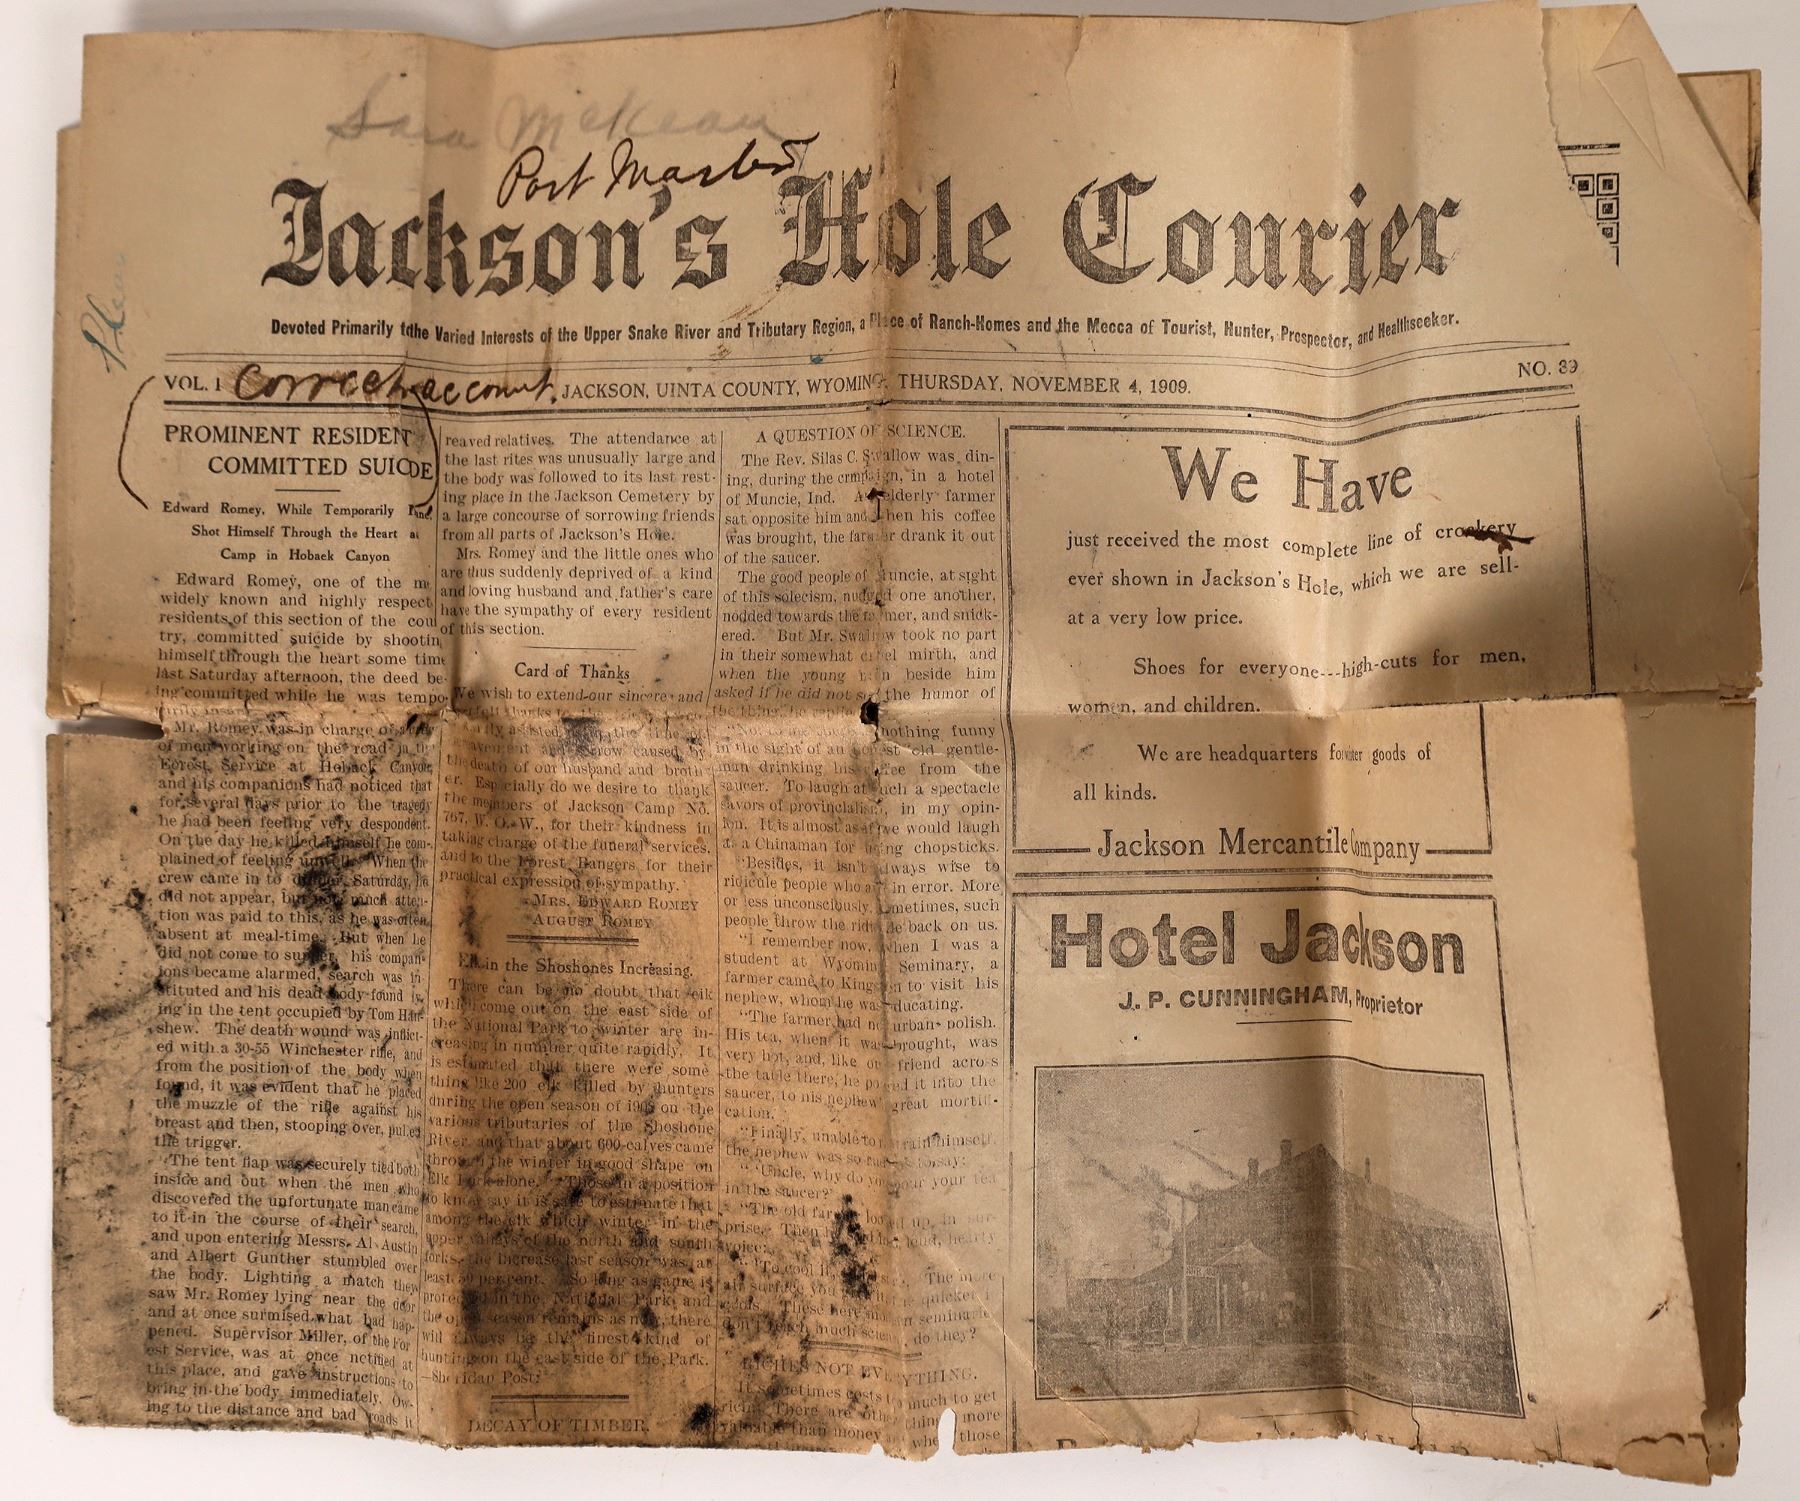 Sara McKean
Post Master
Jackson's Hole Courier
Devoted Primarily to the Varied Interests of the Upper Snake River and Tributary Region, a Place of Ranch-Homes and the Mecca of Tourist, Hunter, Prospector, and Healthseeker.
VOL. 1 Correct account. JACKSON, UINTA COUNTY, WYOMING, THURSDAY, NOVEMBER 4, 1909. NO. 39
PROMINENT RESIDENT
COMMITTED SUICIDE
Edward Romey, While Temporarily
Shot Himself Through the Heart at
Camp in Hoback Canyon
Edward Romey, one of the
widely known and highly respect
residents of this section of the coun
try, committed suicide by shootin
himself through the heart some time
last Saturday afternoon, the deed be-
ing committed while he was tempo-
Mr. Romey was in charge of a
of men working on the road in the
Forest Service at Hoback Canyon,
and his companions had noticed that
for several days prior to the tragedy
he had been feeling very despondent.
On the day he killed himself he com-
plained of feeling unwell. When the
crew came in to dinner Saturday, he
did not appear, but not much atten-
tion was paid to this, as he was often
absent at meal-time. But when he
did not come to supper, his compan-
ions became alarmed, search was in-
stituted and his dead body found ly-
ing in the tent occupied by Tom Han-
shew. The death wound was inflict-
ed with a 30-55 Winchester rifle, and
from the position of the body when
found, it was evident that he placed
the muzzle of the rifle against his
breast and then, stooping over, pulled
the trigger.
The tent flap was securely tied both
inside and out when the men who
discovered the unfortunate man came
to it in the course of their search,
and upon entering Messrs. Al Austin
and Albert Gunther stumbled over
the body. Lighting a match they
saw Mr. Romey lying near the door
and at once surmised what had hap-
pened. Supervisor Miller, of the For
est Service, was at once notified at
this place, and gave instructions to
bring in the body immediately. Ow-
ing to the distance and bad roads it
reaved relatives. The attendance at
the last rites was unusually large and
the body was followed to its last rest-
ing place in the Jackson Cemetery by
a large concourse of sorrowing friends
from all parts of Jackson's Hole.
Mrs. Romey and the little ones who
are thus suddenly deprived of a kind
and loving husband and father's care
have the sympathy of every resident
of this section.
Card of Thanks
We wish to extend our sincere and
heartfelt thanks to the
kindly assisted us in the time of
bereavement and sorrow caused by
the death of our husband and broth-
er. Especially do we desire to thank
the members of Jackson Camp No.
767, W. O. W., for their kindness in
taking charge of the funeral services,
and to the Forest Rangers for their
practical expression of sympathy.
MRS. EDWARD ROMEY
AUGUST ROMEY
Elk in the Shoshones Increasing.
There can be no doubt that elk
which come out on the east side of
the National Park to winter are in-
creasing in number quite rapidly. It
is estimated that there were some
thing like 200 elk killed by hunters
during the open season of 190 on the
various tributaries of the Shoshone
River, and that about 600 calves came
through the winter in good shape on
Elk Fork alone. Those in a position
to know say it is safe to estimate that
among the elk which winter in the
upper valleys of the north and south
forks, the increase last season was at
least 50 per cent. So long as game is
protected in the National Park and
the open season remains as now, there
will always be the finest kind of
hunting on the east side of the Park.
—Sheridan Post.
DECAY OF TIMBER.
A QUESTION OF SCIENCE.
The Rev. Silas C. Swallow was din-
ing, during the cmpaign, in a hotel
of Muncie, Ind. An elderly farmer
sat opposite him and when his coffee
was brought, the farmer drank it out
of the saucer.
The good people of Muncie, at sight
of this solecism, nudged one another,
nodded towards the farmer, and snick-
ered. But Mr. Swallow took no part
in their somewhat cruel mirth, and
when the young man beside him
asked if he did not see the humor of
the thing, he replied
nothing funny
in the sight of an honest old gentle-
man drinking his coffee from the
saucer. To laugh at such a spectacle
savors of provincialism, in my opin-
ion. It is almost as if we would laugh
at a Chinaman for using chopsticks.
"Besides, it isn't always wise to
ridicule people who are in error. More
or less unconsciously, sometimes, such
people throw the ridicule back on us.
"I remember now, when I was a
student at Wyoming Seminary, a
farmer came to Kingston to visit his
nephew, whom he was educating.
"The farmer had no urban polish.
His tea, when it was brought, was
very hot, and, like our friend across
the table there, he poured it into the
saucer, to his nephew's great morti-
cation.
"Finally, unable to restrain himself,
the nephew was so rude as to say:
"'Uncle, why do you pour your tea
in the saucer?'
"The old farmer looked up in sur-
prise. Then he said in a loud, hearty
voice:
"'To cool it, The more
air surface you give it the quicker it
cools. These here modern seminaries
don't teach much science, do they?'
RICHES NOT EVERYTHING.
It sometimes costs too much to get
rich. There are other things more
valuable than money and when those
We Have
just received the most complete line of crockery
ever shown in Jackson's Hole, which we are sell-
at a very low price.
Shoes for everyone---high-cuts for men,
women, and children.
We are headquarters for winter goods of
all kinds.
Jackson Mercantile Company
Hotel Jackson
J. P. CUNNINGHAM, Proprietor